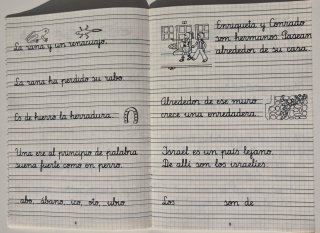 La rana y un renacuajo.
La rana ha perdido su rabo.
Es de hierro la herradura.
Una ere al principio de palabra
suena fuerte como en perro.
abo, ábano, ico, oto, ubio.
8
Enriqueta y Conrado
son hermanos. Pasean
alrededor de su casa.
Alrededor de ese muro
crece una enredadera.
Israel es un país lejano.
De allí son los israelíes.
Los son de
9